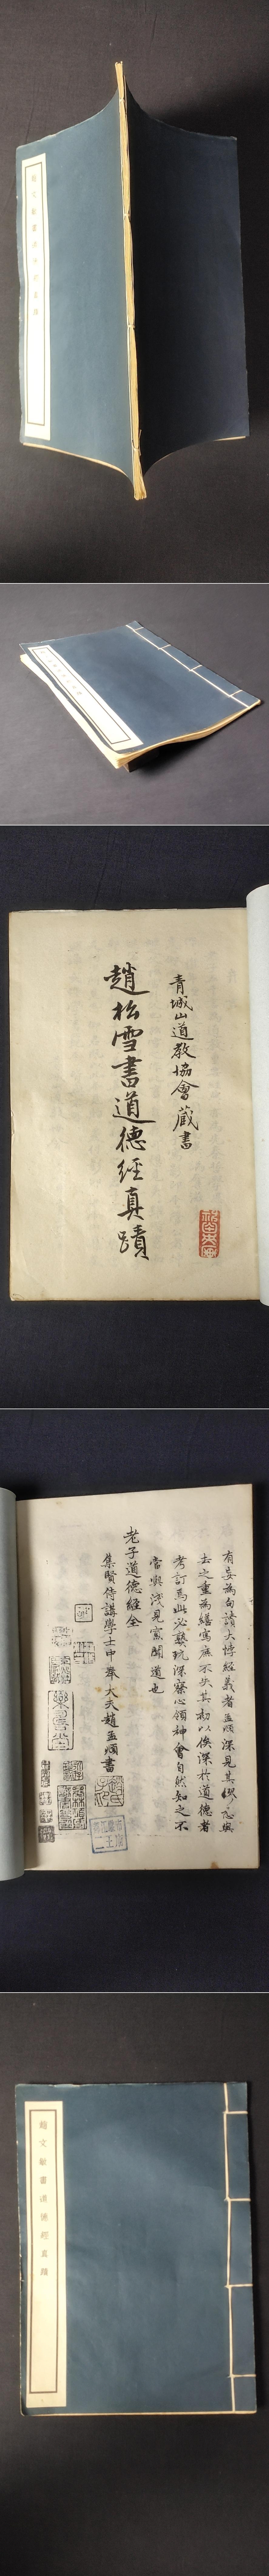 趙文敏書道德經真蹟
青城山道教協會藏書
趙松雪書道德經真蹟
有妄為句讀大悖經義者孟頫深見其謬忘與
去之重為繕寫庶不失其初以俟深於道德者
考訂焉此必熟玩深察心領神會自然知之不
當與淺見寡聞道也
老子道德經全
集賢侍講學士中奉大夫趙孟頫書
樂善堂
趙文敏書道德經真蹟